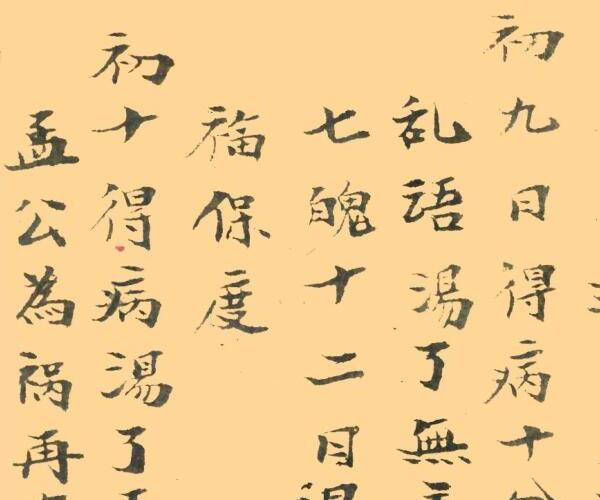 初九日得病十
乱語湯了無
七魄十二目
福保度
初十得病湯了
孟公為祸再